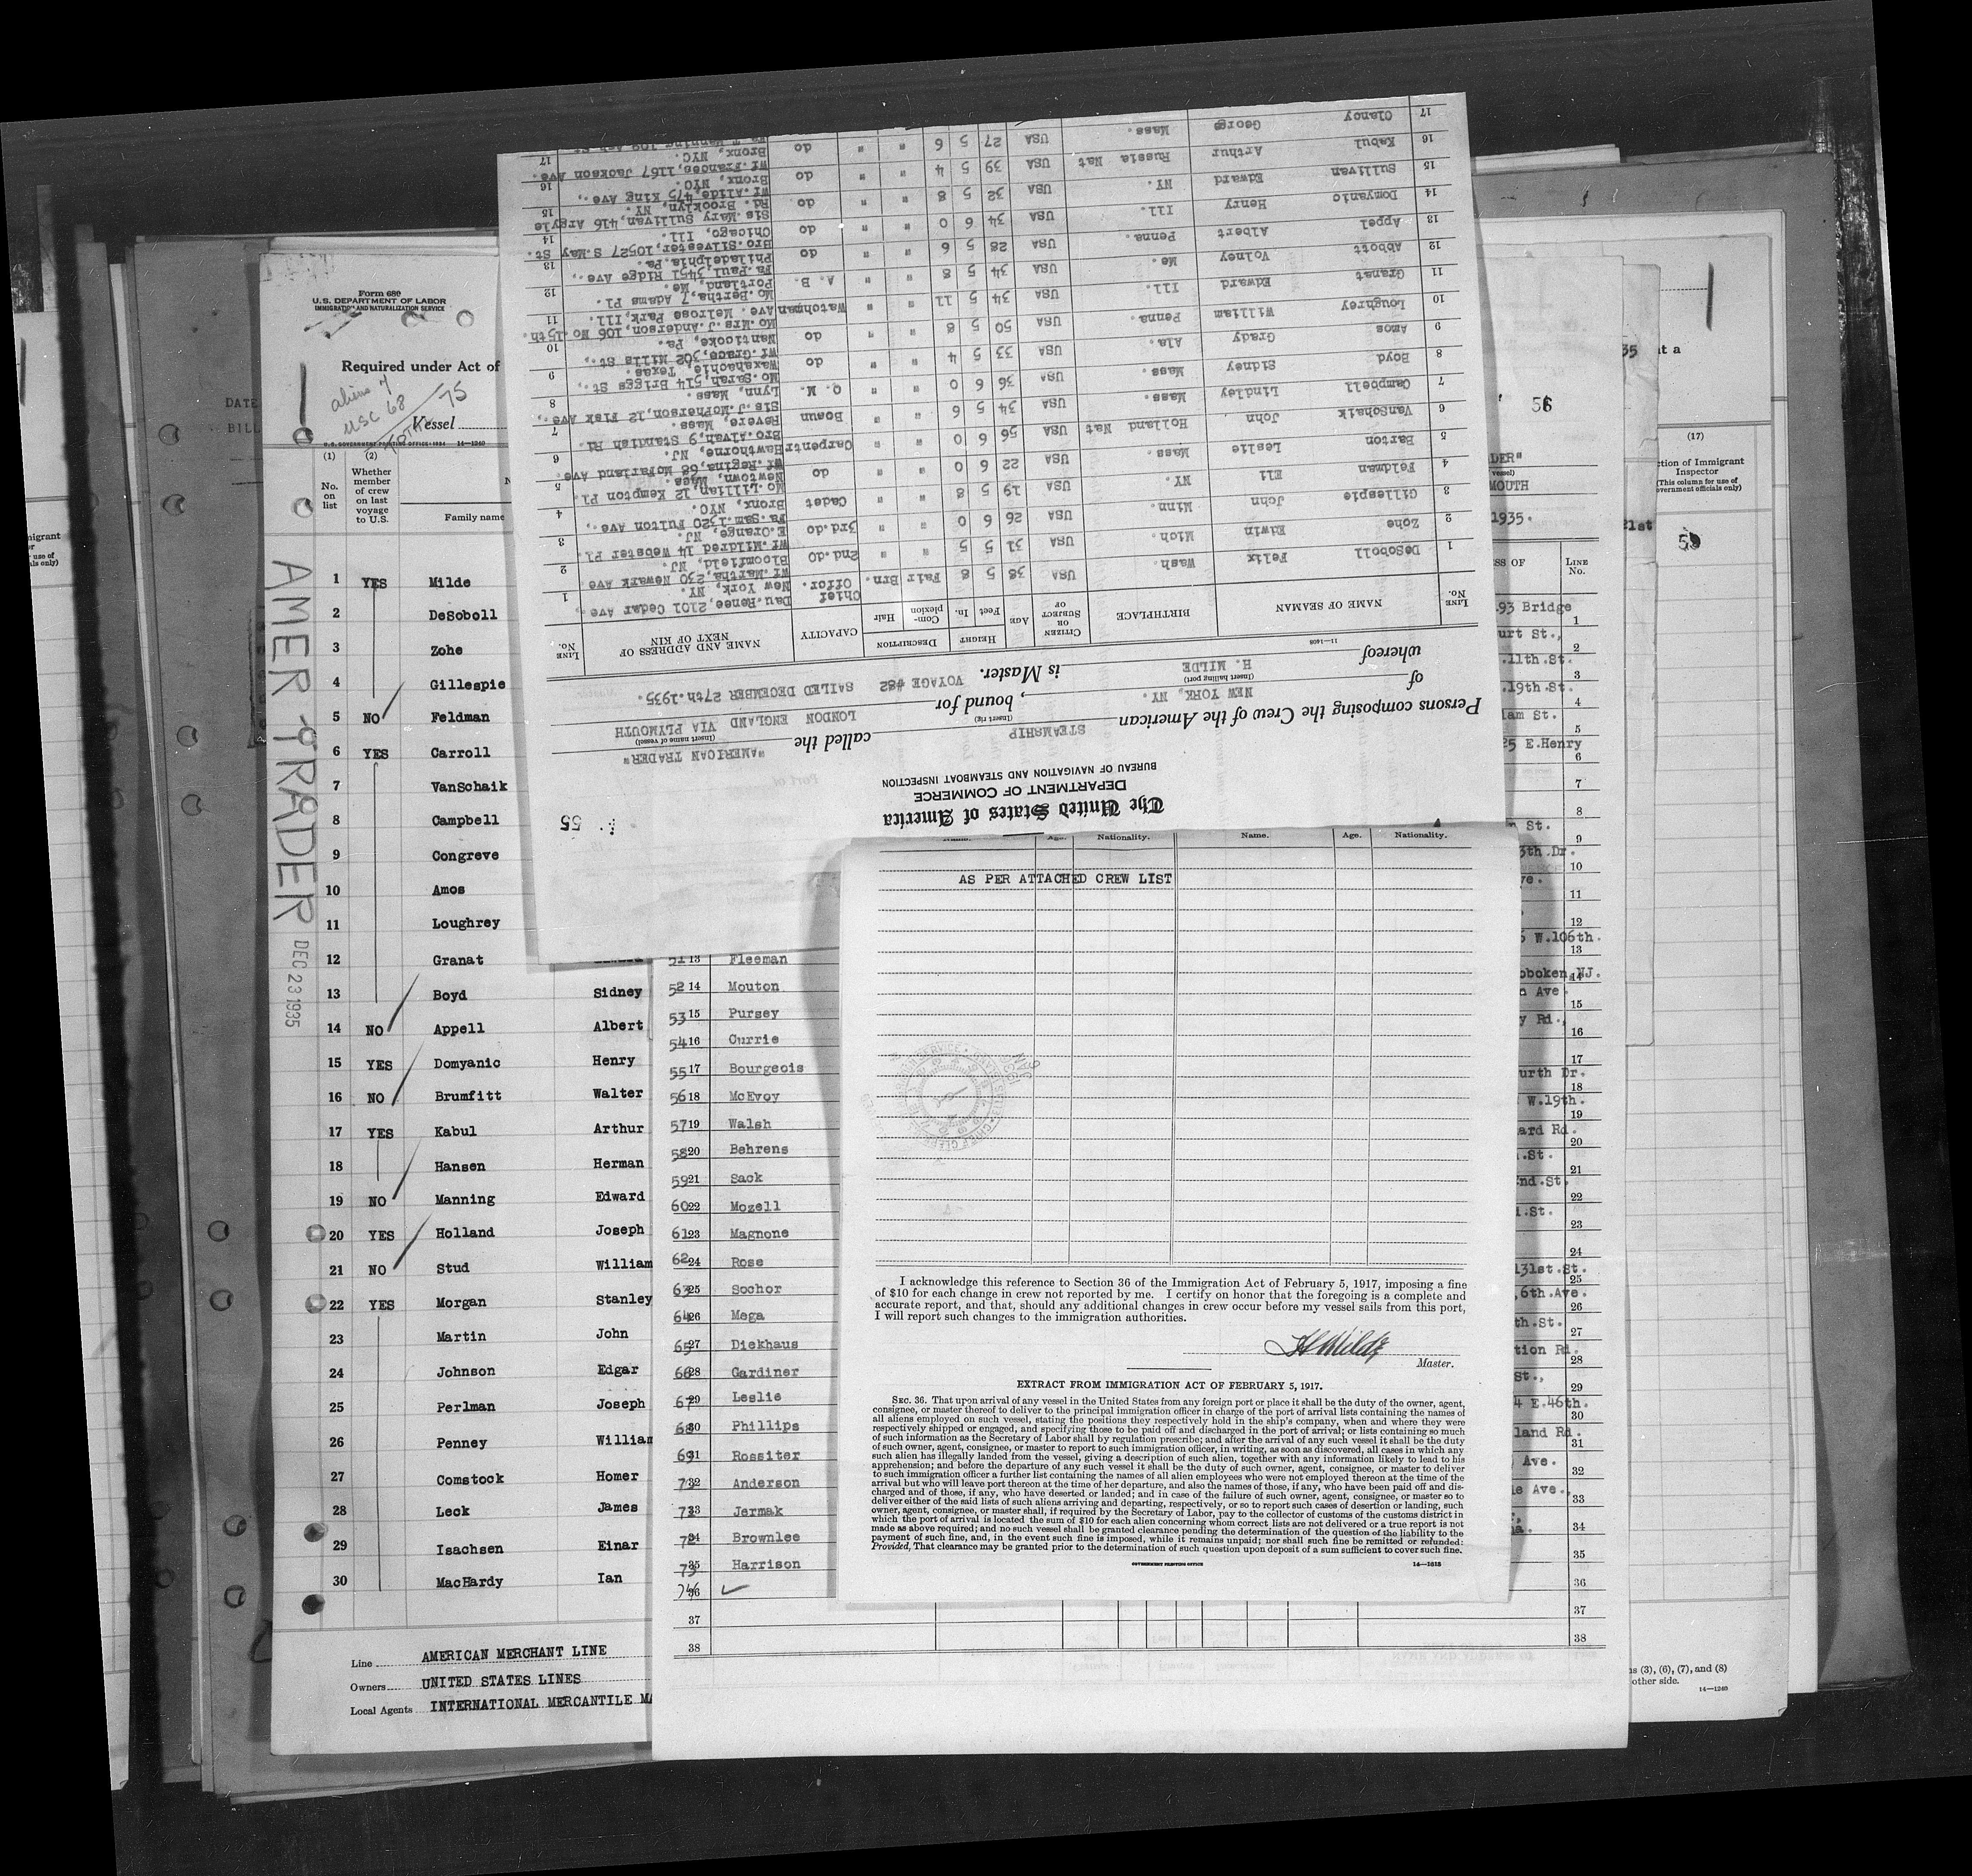 Form 689
U.S. DEPARTMENT OF LABOR
IMMIGRATION AND NATURALIZATION SERVICE
Required under Act of
aliens 7
USC 68
TOTAL 75
Vessel
U.S. GOVERNMENT PRINTING OFFICE: 1934 14—1240
(1) (2)
No. on list
Whether member of crew on last voyage to U.S.
Family name
AMER TRADER
DEC 23 1935
1 YES Milde
2 DeSoboll
3 Zohe
4 Gillespie
5 NO Feldman
6 YES Carroll
7 VanSchaik
8 Campbell
9 Congreve
10 Amos
11 Loughrey
12 Granat
13 Boyd Sidney
14 NO Appell Albert
15 YES Domyanic Henry
16 NO Brumfitt Walter
17 YES Kabul Arthur
18 Hansen Herman
19 NO Manning Edward
20 YES Holland Joseph
21 NO Stud William
22 YES Morgan Stanley
23 Martin John
24 Johnson Edgar
25 Perlman Joseph
26 Penney William
27 Comstock Homer
28 Leck James
29 Isachsen Einar
30 MacHardy Ian
Line AMERICAN MERCHANT LINE
Owners UNITED STATES LINES
Local Agents INTERNATIONAL MERCANTILE MA
55
The United States of America
DEPARTMENT OF COMMERCE
BUREAU OF NAVIGATION AND STEAMBOAT INSPECTION
Persons composing the Crew of the American STEAMSHIP called the "AMERICAN TRADER"
(Insert rig) (Insert name of vessel)
of NEW YORK, NY. , bound for LONDON ENGLAND VIA PLYMOUTH
(Insert hailing port)
whereof H. MILDE is Master. VOYAGE #82 SAILED DECEMBER 27th.1935.
11—1408
LINE No. NAME OF SEAMAN BIRTHPLACE CITIZEN OR SUBJECT OF AGE HEIGHT Feet In. DESCRIPTION Complexion Hair CAPACITY NAME AND ADDRESS OF NEXT OF KIN LINE No.
1 DeSoboll Felix Wash. USA 38 5 8 Fair Brn. Chief Offcr. Dau.Renee,2101 Cedar Ave, New York, NY. 1
2 Zohe Edwin Mich. USA 31 5 5 " " 2nd.do. Wf.Martha,230 Newark Ave Bloomfield, NJ. 2
3 Gillespie John Minn. USA 26 6 0 " " 3rd.do. Wf.Mildred 14 Webster Pl E.Orange, NJ. 3
4 Feldman Eli NY. USA 19 5 8 " " Cadet Fa.Sam.1320 Fulton Ave., Bronx NYC. 4
5 Barton Leslie Mass. USA 22 6 0 " " do Mo.Lillian,12 Kempton Pl. Newtown, Mass. 5
6 VanSchaik John Holland Nat USA 56 6 0 " " Carpentr Wf.Regina,68 McFarland Ave Hawthorne, NJ. 6
7 Campbell Lindley Mass. USA 34 5 6 " " Bosun Bro.Alvan,9 Standish Rd. Revere, Mass. 7
8 Boyd Sidney Mass. USA 36 6 0 " " Q. M. Sis J.McPherson,12 Fisk Ave., Lynn, Mass. 8
9 Amos Grady Ala. USA 33 5 4 " " do Mo.Sarah,514 Briggs St., Waxahachie, Texas. 9
10 Loughrey William Penna. USA 50 5 8 " " do Wf.Grace,302 Mills St., Nanticoke, Pa. 10
11 Granat Edward Ill. USA 34 5 11 " " Watchman Mo.Mrs.J.Anderson,106 No.15th. Ave. Melrose Park,Ill. 11
12 Abbott Volney Me. USA 34 5 8 " " A. B. Mo.Bertha,7 Adams Pl. Portland, Me. 12
13 Appel Albert Penna. USA 28 5 6 " " do Fa.Paul,3451 Ridge Ave., Philadelphia.Pa. 13
14 Domyanic Henry Ill. USA 34 6 0 " " do Bro.Silvester,10527 S.May St. Chicago, Ill. 14
15 Sullivan Edward NY. USA 32 5 8 " " do. Sis.Mary Sullivan,416 Argyle Rd. Brooklyn, NY. 15
16 Kabul Arthur Russia Nat USA 39 5 4 " " do Wf.Alide,475 King Ave., Bronx, NYC. 16
17 Clancy George Mass. USA 27 5 6 " " do Wf.Frances,1167 Jackson Ave. Bronx, NYC. 17
51 13 Fleeman
52 14 Mouton
53 15 Pursey
54 16 Currie
55 17 Bourgeois
56 18 McEvoy
57 19 Walsh
58 20 Behrens
59 21 Sack
60 22 Mozell
61 23 Magnone
62 24 Rose
63 25 Sochor
64 26 Mega
65 27 Diekhaus
66 28 Gardiner
67 29 Leslie
68 30 Phillips
69 31 Rossiter
32 Anderson
33 Jermak
34 Brownlee
35 Harrison
36
37
38
Name. Age. Nationality. Name. Age. Nationality.
AS PER ATTACHED CREW LIST
I acknowledge this reference to Section 36 of the Immigration Act of February 5, 1917, imposing a fine
of $10 for each change in crew not reported by me. I certify on honor that the foregoing is a complete and
accurate report, and that, should any additional changes in crew occur before my vessel sails from this port,
I will report such changes to the immigration authorities.
H Milde
Master.
EXTRACT FROM IMMIGRATION ACT OF FEBRUARY 5, 1917.
SEC. 36. That upon arrival of any vessel in the United States from any foreign port or place it shall be the duty of the owner, agent,
consignee, or master thereof to deliver to the principal immigration officer in charge of the port of arrival lists containing the names of
all aliens employed on such vessel, stating the positions they respectively hold in the ship's company, when and where they were
respectively shipped or engaged, and specifying those to be paid off and discharged in the port of arrival; or lists containing so much
of such information as the Secretary of Labor shall by regulation prescribe; and after the arrival of any such vessel it shall be the duty
of such owner, agent, consignee, or master to report to such immigration officer, in writing, as soon as discovered, all cases in which any
such alien has illegally landed from the vessel, giving a description of such alien, together with any information likely to lead to his
apprehension; and before the departure of any such vessel it shall be the duty of such owner, agent, consignee, or master to deliver
to such immigration officer a further list containing the names of all alien employees who were not employed thereon at the time of the
arrival but who will leave port thereon at the time of her departure, and also the names of those, if any, who have been paid off and dis-
charged and of those, if any, who have deserted or landed; and in case of the failure of such owner, agent, consignee, or master so to
deliver either of the said lists of such aliens arriving and departing, respectively, or so to report such cases of desertion or landing, such
owner, agent, consignee, or master shall, if required by the Secretary of Labor, pay to the collector of customs of the customs district in
which the port of arrival is located the sum of $10 for each alien concerning whom correct lists are not delivered or a true report is not
made as above required; and no such vessel shall be granted clearance pending the determination of the question of the liability to the
payment of such fine, and, in the event such fine is imposed, while it remains unpaid; nor shall such fine be remitted or refunded:
Provided, That clearance may be granted prior to the determination of such question upon deposit of a sum sufficient to cover such fine.
GOVERNMENT PRINTING OFFICE 14—1618
56
DER"
MOUTH
1935.
SS OF LINE No.
93 Bridge 1
urt St., 2
.11th.St. 3
.19th.St. 4
iam St. 5
25 E.Henry 6
7
8
St. 9
5th.Dr. 10
ve. 11
12
W.106th. 13
oboken,NJ. 14
n Ave 15
y Rd., 16
17
urth Dr. 18
W.19th. 19
ard Rd. 20
.St. 21
2nd.St. 22
.St. 23
24
131st.St. 25
,6th.Ave. 26
th.St. 27
tion Rd. 28
St., 29
4 E.46th. 30
land Rd. 31
Ave. 32
ie Ave., 33
34
35
36
37
38
35 at a
(17)
ction of Immigrant Inspector
(This column for use of
overnment officials only)
21st
ns (3), (6), (7), and (8)
other side.
14—1240
DATE
BILL